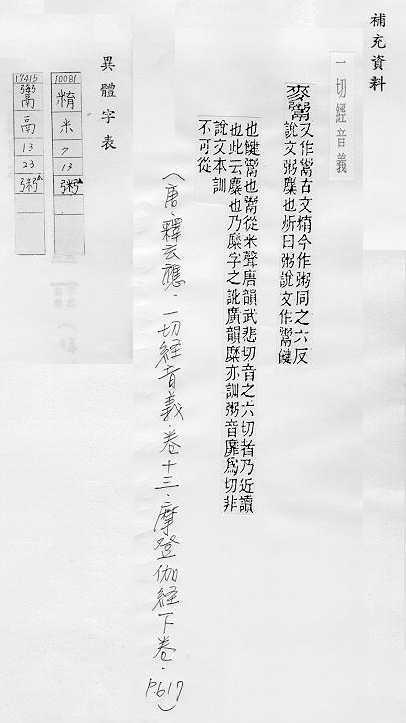 補充資料
一切經音義
麥鬻 又作鬻古文䊗今作粥同之六反
說文粥麋也炘曰粥說文作鬻健
也健鬻也鬻從米聲唐韻武悲切音之六切者乃近讀
也此云麋也乃糜字之訛廣韻糜亦訓粥音靡為切非
說文本訓
不可從
（唐．釋玄應．一切經音義．卷十三．摩登伽經下卷．P617）
異體字表
10081
米
7
13
粥
17415
鬻
鬲
13
23
粥